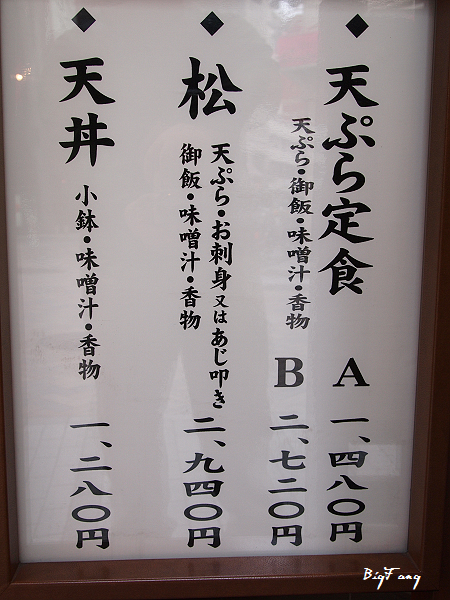 ◆天ぷら定食 A 一、四八〇円
天ぷら・御飯・味噌汁・香物 B 二、七二〇円
◆松
天ぷら・お刺身又はあじ叩き
御飯・味噌汁・香物 二、九四〇円
◆天丼
小鉢・味噌汁・香物 一、二八〇円
BigFang